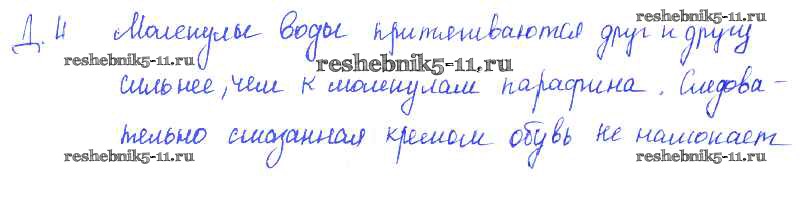 Д. 4 Молекулы воды притягиваются друг к другу
reshebnik5-11.ru
reshebnik5-11.ru reshebnik5-11.ru
сильнее, чем к молекулам парафина. Следова-
тельно смазанная кремом обувь не намокает
reshebnik5-11.ru reshebnik5-11.ru